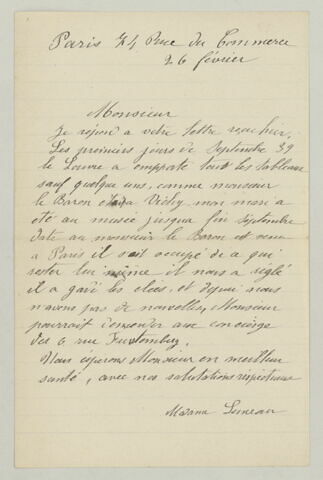 Paris 74 Rue du Commerce
26 février
Monsieur
Je repond a votre lettre reçu hier,
Les premiers jours de Septembre 39
le Louvre a emporté tout les tableaux
sauf quelque uns, comme monsieur
le Baron était a Vichy mon mari a
été au musée jusqua fin Septembre
date au monsieur le Baron est venu
a Paris il s'est occupé de a qui
rester lui même il nous a reglé
il a gardé les clées, et depuis nous
n'avons pas de nouvelles, Monsieur
pourrait demander au concierge
des 6 rue Furstemberg.
Nous esperons Monsieur en meilleur
santé, avec nos salutations respectueuses
Madame